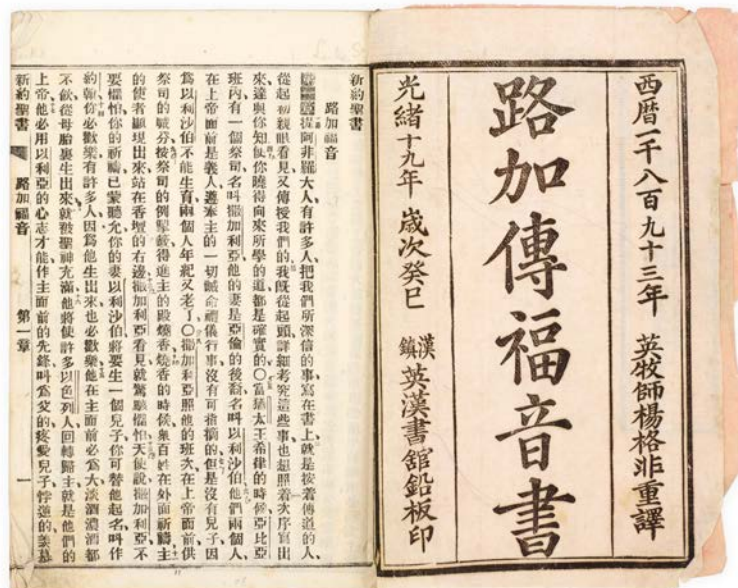 西暦一千八百九十三年 英牧師楊格非重譯
路加傳福音書
光緒十九年 歲次癸巳 漢鎮英漢書舘鉛板印
新約聖書
路加福音
提阿非羅大人有許多人把我們所深信的事寫在書上就是按着傳道的人、
從起初親眼看見又傳授我們的我既從起頭詳細考究這些事也想照着次序寫出
來達與你知叫你曉得向來所學的道都是確實的○當猶太王希律的時候亞比亞
班內有一個祭司名叫撒加利亞他的妻是亞倫的後裔名叫以利沙伯他們兩個人、
在上帝面前是義人遵奉主的一切誡命禮儀行事沒有可指摘的但是沒有兒子因
爲以利沙伯不能生育兩個人年紀又老了○撒加利亞照他的班次在上帝面前供
祭司的職分按祭司的例掣籤得進主的殿燒香燒香的時候衆百姓在外面祈禱主
的使者顯現出來站在香壇的右邊撒加利亞看見就驚駭懼怕天使說撒加利亞不
要懼怕你的祈禱已蒙聽允你的妻以利沙伯將要生一個兒子你可替他起名叫作
約翰你必歡樂有許多人因爲他生出來也必歡樂他在主面前必爲大淡酒濃酒都
不飲從母胎裏生出來就被聖神充滿他將使許多以色列人回轉歸主就是他們的
上帝他必用以利亞的心志才能作主面前的先鋒叫爲父的疼愛兒子悖逆的羨慕
新約聖書 路加福音 第一章 一